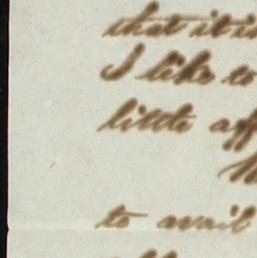 that it is
I like to
little aff
to avail